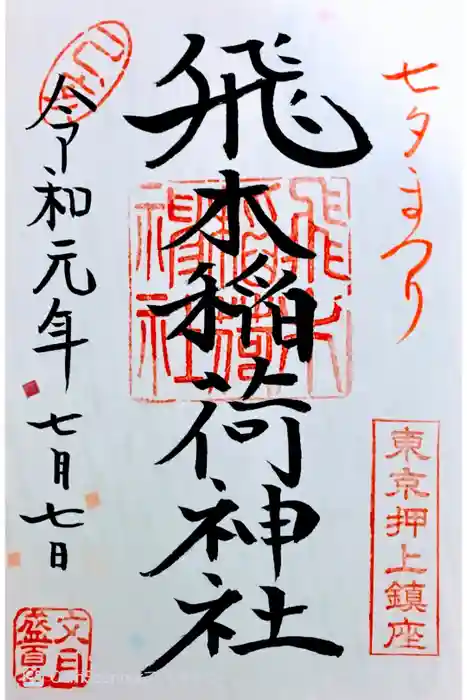 七夕まつり
東京押上鎮座
飛木稲荷神社
飛木稲荷神社
令和元年
七月七日
文月
盛夏